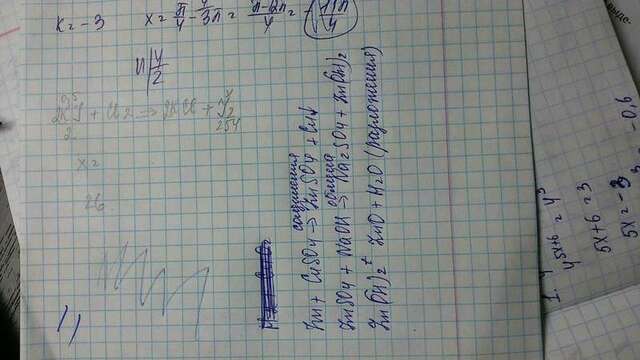 K = -3 x = π/4 - 3π = π-12π/4 = -11π/4
2KI + Cl2 → 2KCl + I2
254
x =
26
соединения
Zn + CuSO4 → ZnSO4 + Cu↓
обмена
ZnSO4 + NaOH → Na2SO4 + Zn(OH)2
Zn(OH)2 t ZnO + H2O (разложения)
5x+6=3
5x = -3
-0,6